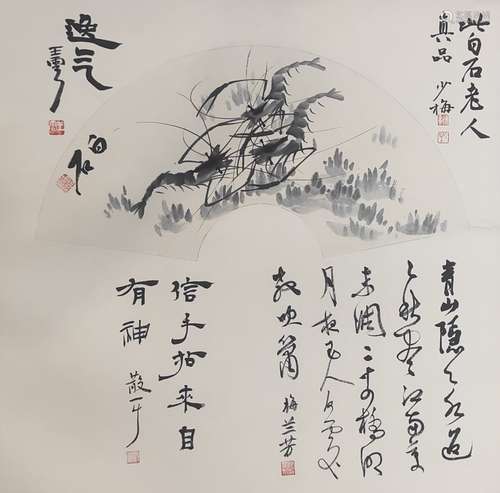 此白石老人
真品 少梅
逸气
王雪涛
白石
青山隐隐水迢
迢秋尽江南草
未凋二十四桥明
月夜玉人何处
教吹箫 梅兰芳
信手拈来自
有神 散一